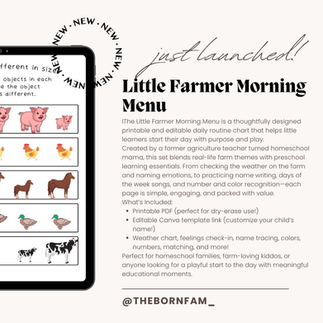 NEW • NEW • NEW • NEW • NEW • NEW
just launched!
Little Farmer Morning
Menu
fferent in size
objects in each
e the object
s different.
!The Little Farmer Morning Menu is a thoughtfully designed
printable and editable daily routine chart that helps little
learners start their day with purpose and play.
Created by a former agriculture teacher turned homeschool
mama, this set blends real-life farm themes with preschool
learning essentials. From checking the weather on the farm
and naming emotions, to practicing name writing, days of
the week songs, and number and color recognition—each
page is simple, engaging, and packed with value.
What's Included:
• Printable PDF (perfect for dry-erase use!)
• Editable Canva template link (customize your child's
name!)
• Weather chart, feelings check-in, name tracing, colors,
numbers, matching, and more!
Perfect for homeschool families, farm-loving kiddos, or
anyone looking for a playful start to the day with meaningful
educational moments.
@THEBORNFAM_